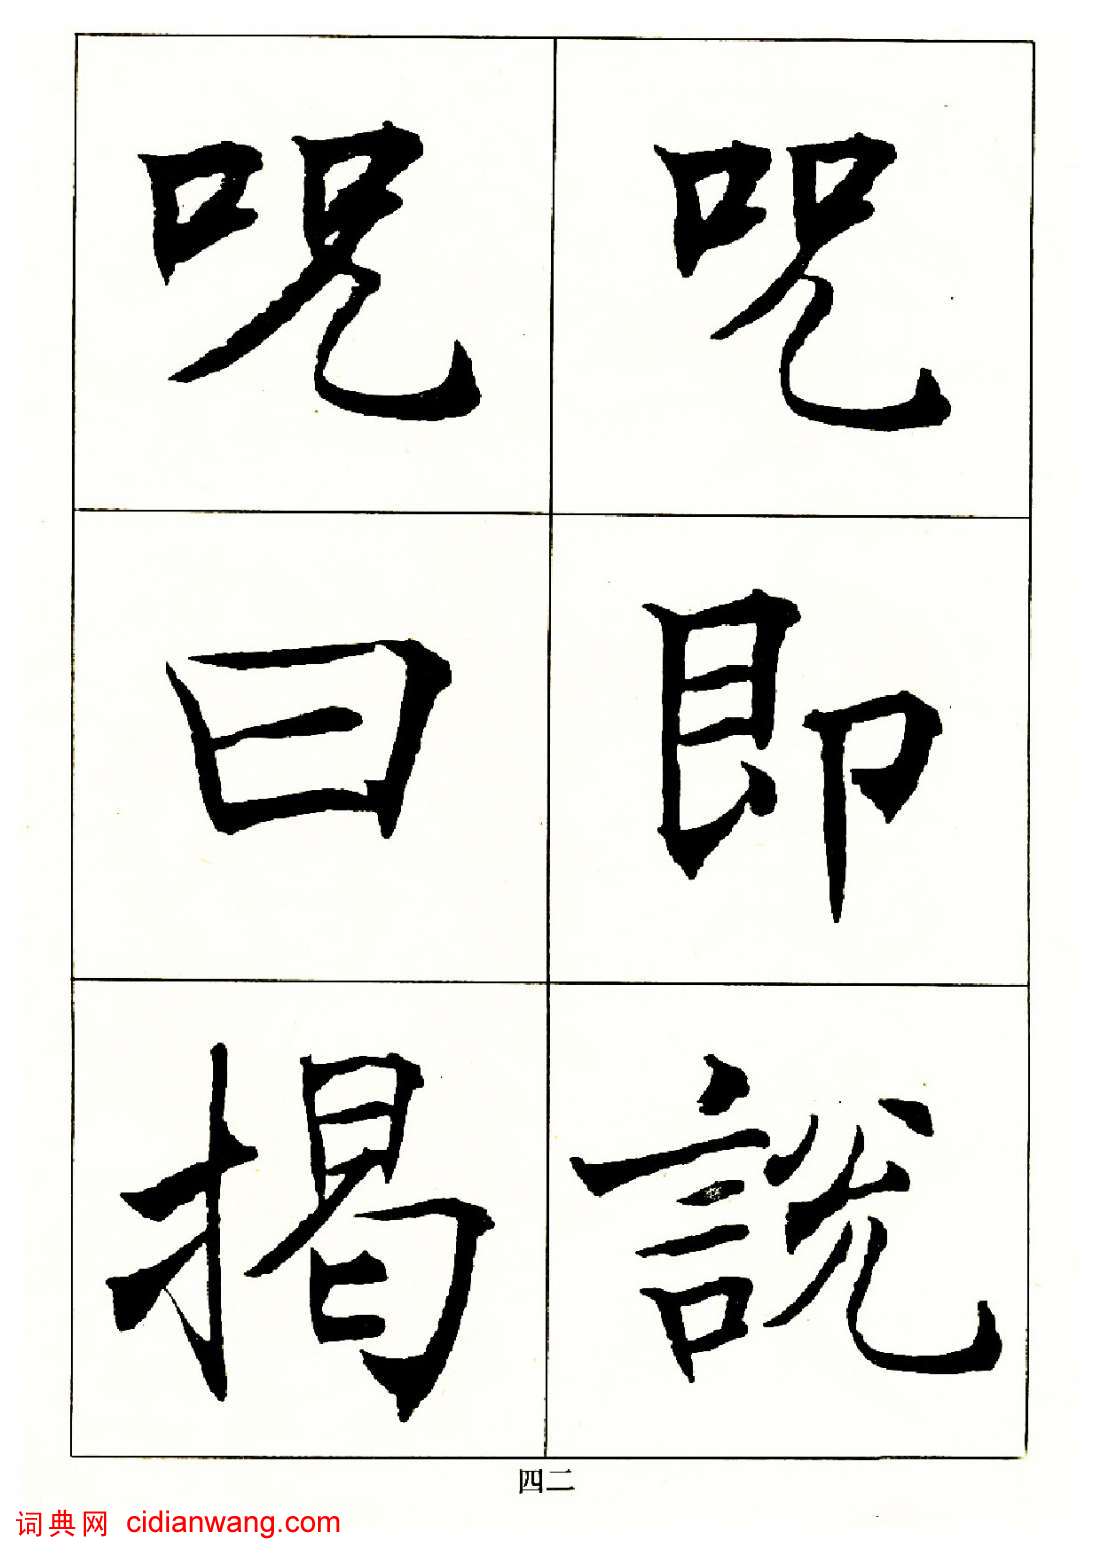 呪即說
呪曰揭
四二
词典网 cidianwang.com